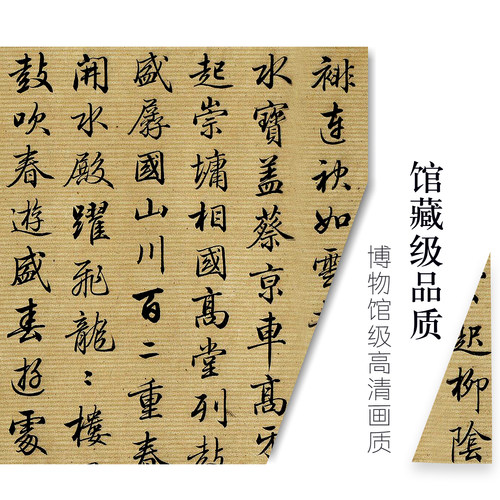 馆藏级品质
博物馆级高清画质
柳陰
連袂如雲
水寶蓋蔡京車高牙
起崇墉相國高堂列鼓
盛國山川百二重春
開水殿躍飛龍〻樓
鼓吹春遊盛春遊處